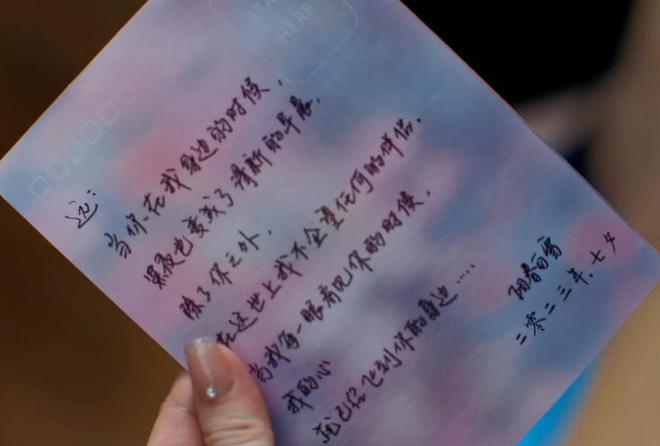 STA
HERE
远：
当你在我身边的时候，
黑夜也变成了清新的早晨，
除了你之外，
在这世上我不企望任何的伴侣。
当我每一眼看见你的时候，
我的心
就已经飞到你的身边……
阳春白雪
二零二三年．七夕